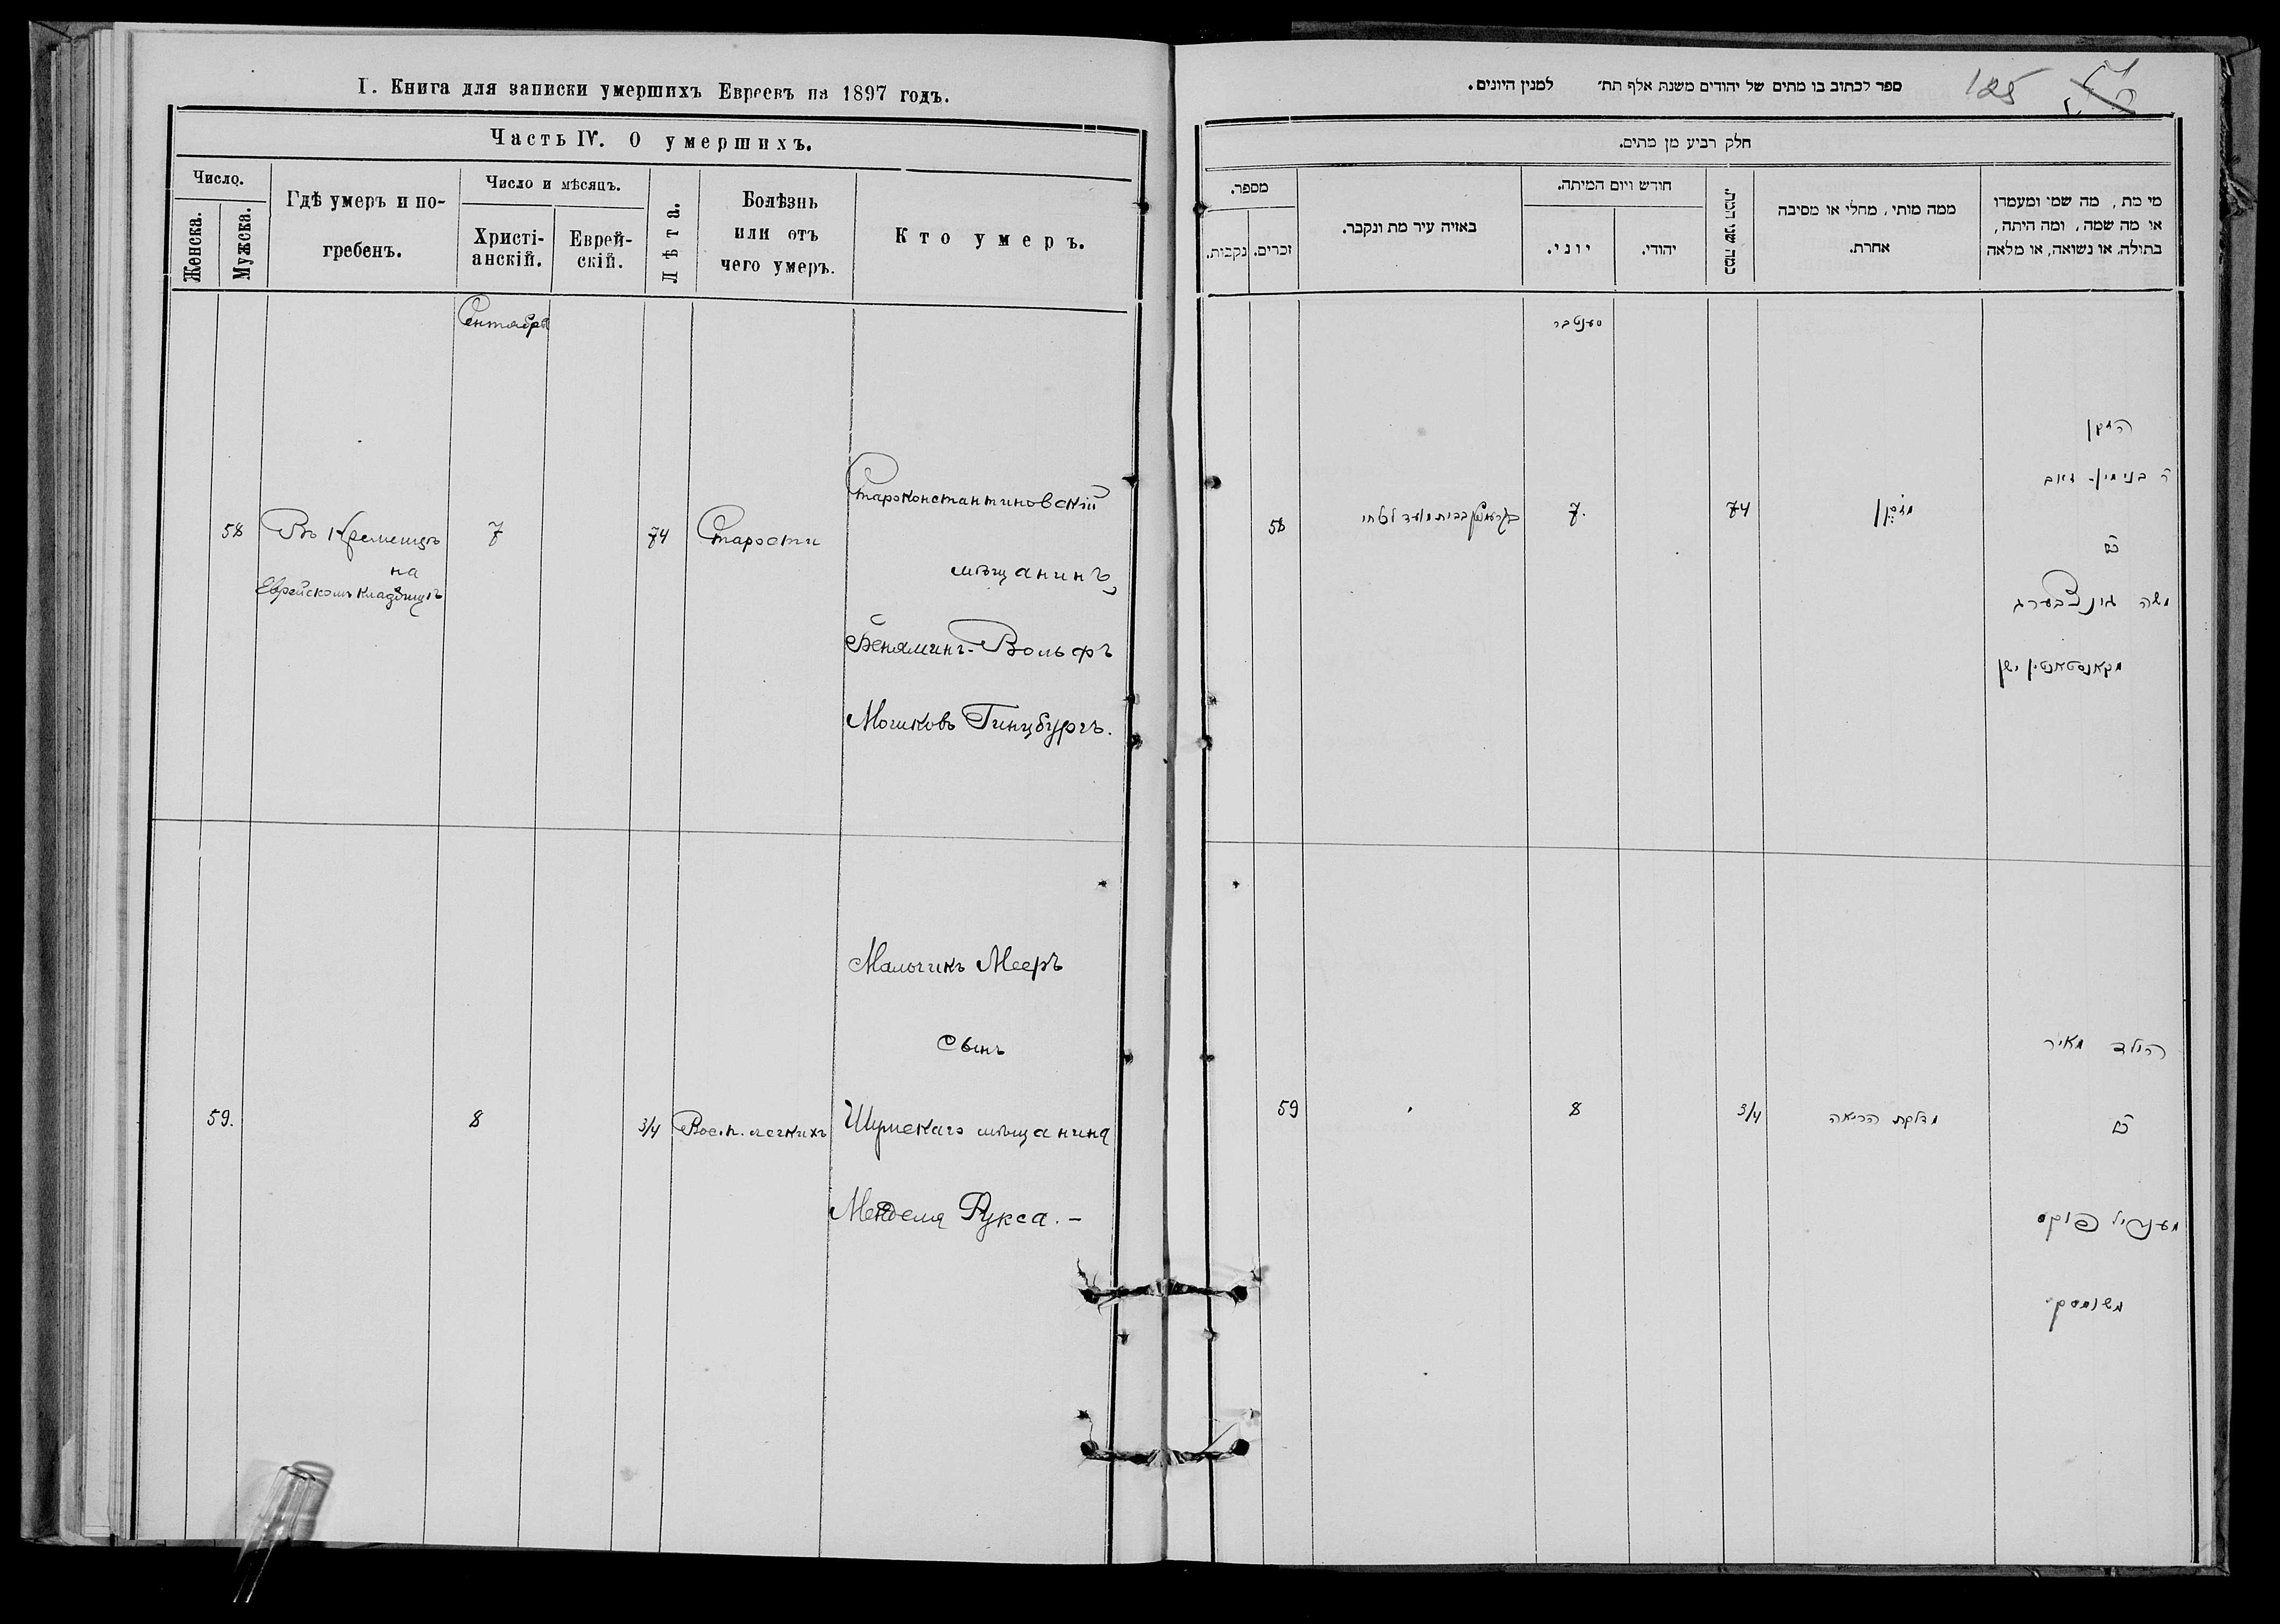 I. Книга для записки умершихъ Евреевъ на 1897 годъ.
Часть IV. О умершихъ.
Число.
Женска.
Мужска.
Гдѣ умеръ и по-
гребенъ.
Число и мѣсяцъ.
Христі-
анскій.
Еврей-
скій.
Лѣта.
Болѣзнь
или отъ
чего умеръ.
Кто умеръ.
Сентябрь
58
Въ Кременцѣ
на
Еврейскомъ кладбищѣ
7
74
Старости
Староконстантиновскій
мѣщанинъ
Беняминъ-Вольфъ
Мошковъ Гинцбургъ.
59.
8
3/4
Восп. легкихъ
Мальчикъ Мееръ
сынъ
Шумскаго мѣщанина
Менделя Фукса.-
ספר לכתוב בו מתים של יהודים משנת אלף תת׳ למנין היונים.
125
חלק רביע מן מתים.
מספר.
נקבות.
זכרים.
באיזה עיר מת ונקבר.
חודש ויום המיתה.
יוני.
יהודי.
כמה שני המת.
ממה מותי, מחלי או מסיבה
אחרת.
מי מת, מה שמו ומעמדו
או מה שמה, ומה היתה,
בתולה, או נשואה, או מלאה
סענטבר
58
7.
74
מזקן
הזקן
ר בנימין-זאב
משה גינצבערג
מקאנסטאנטין ישן
59
8
3/4
מדלקת הריאה
הילד מאיר
מענדיל פוקס
משומסק